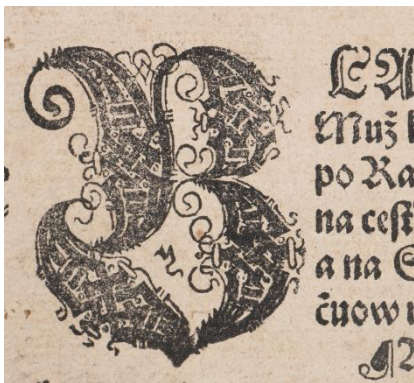 BLA
Muž k
po Ra
na ceſt
a na S
čuow